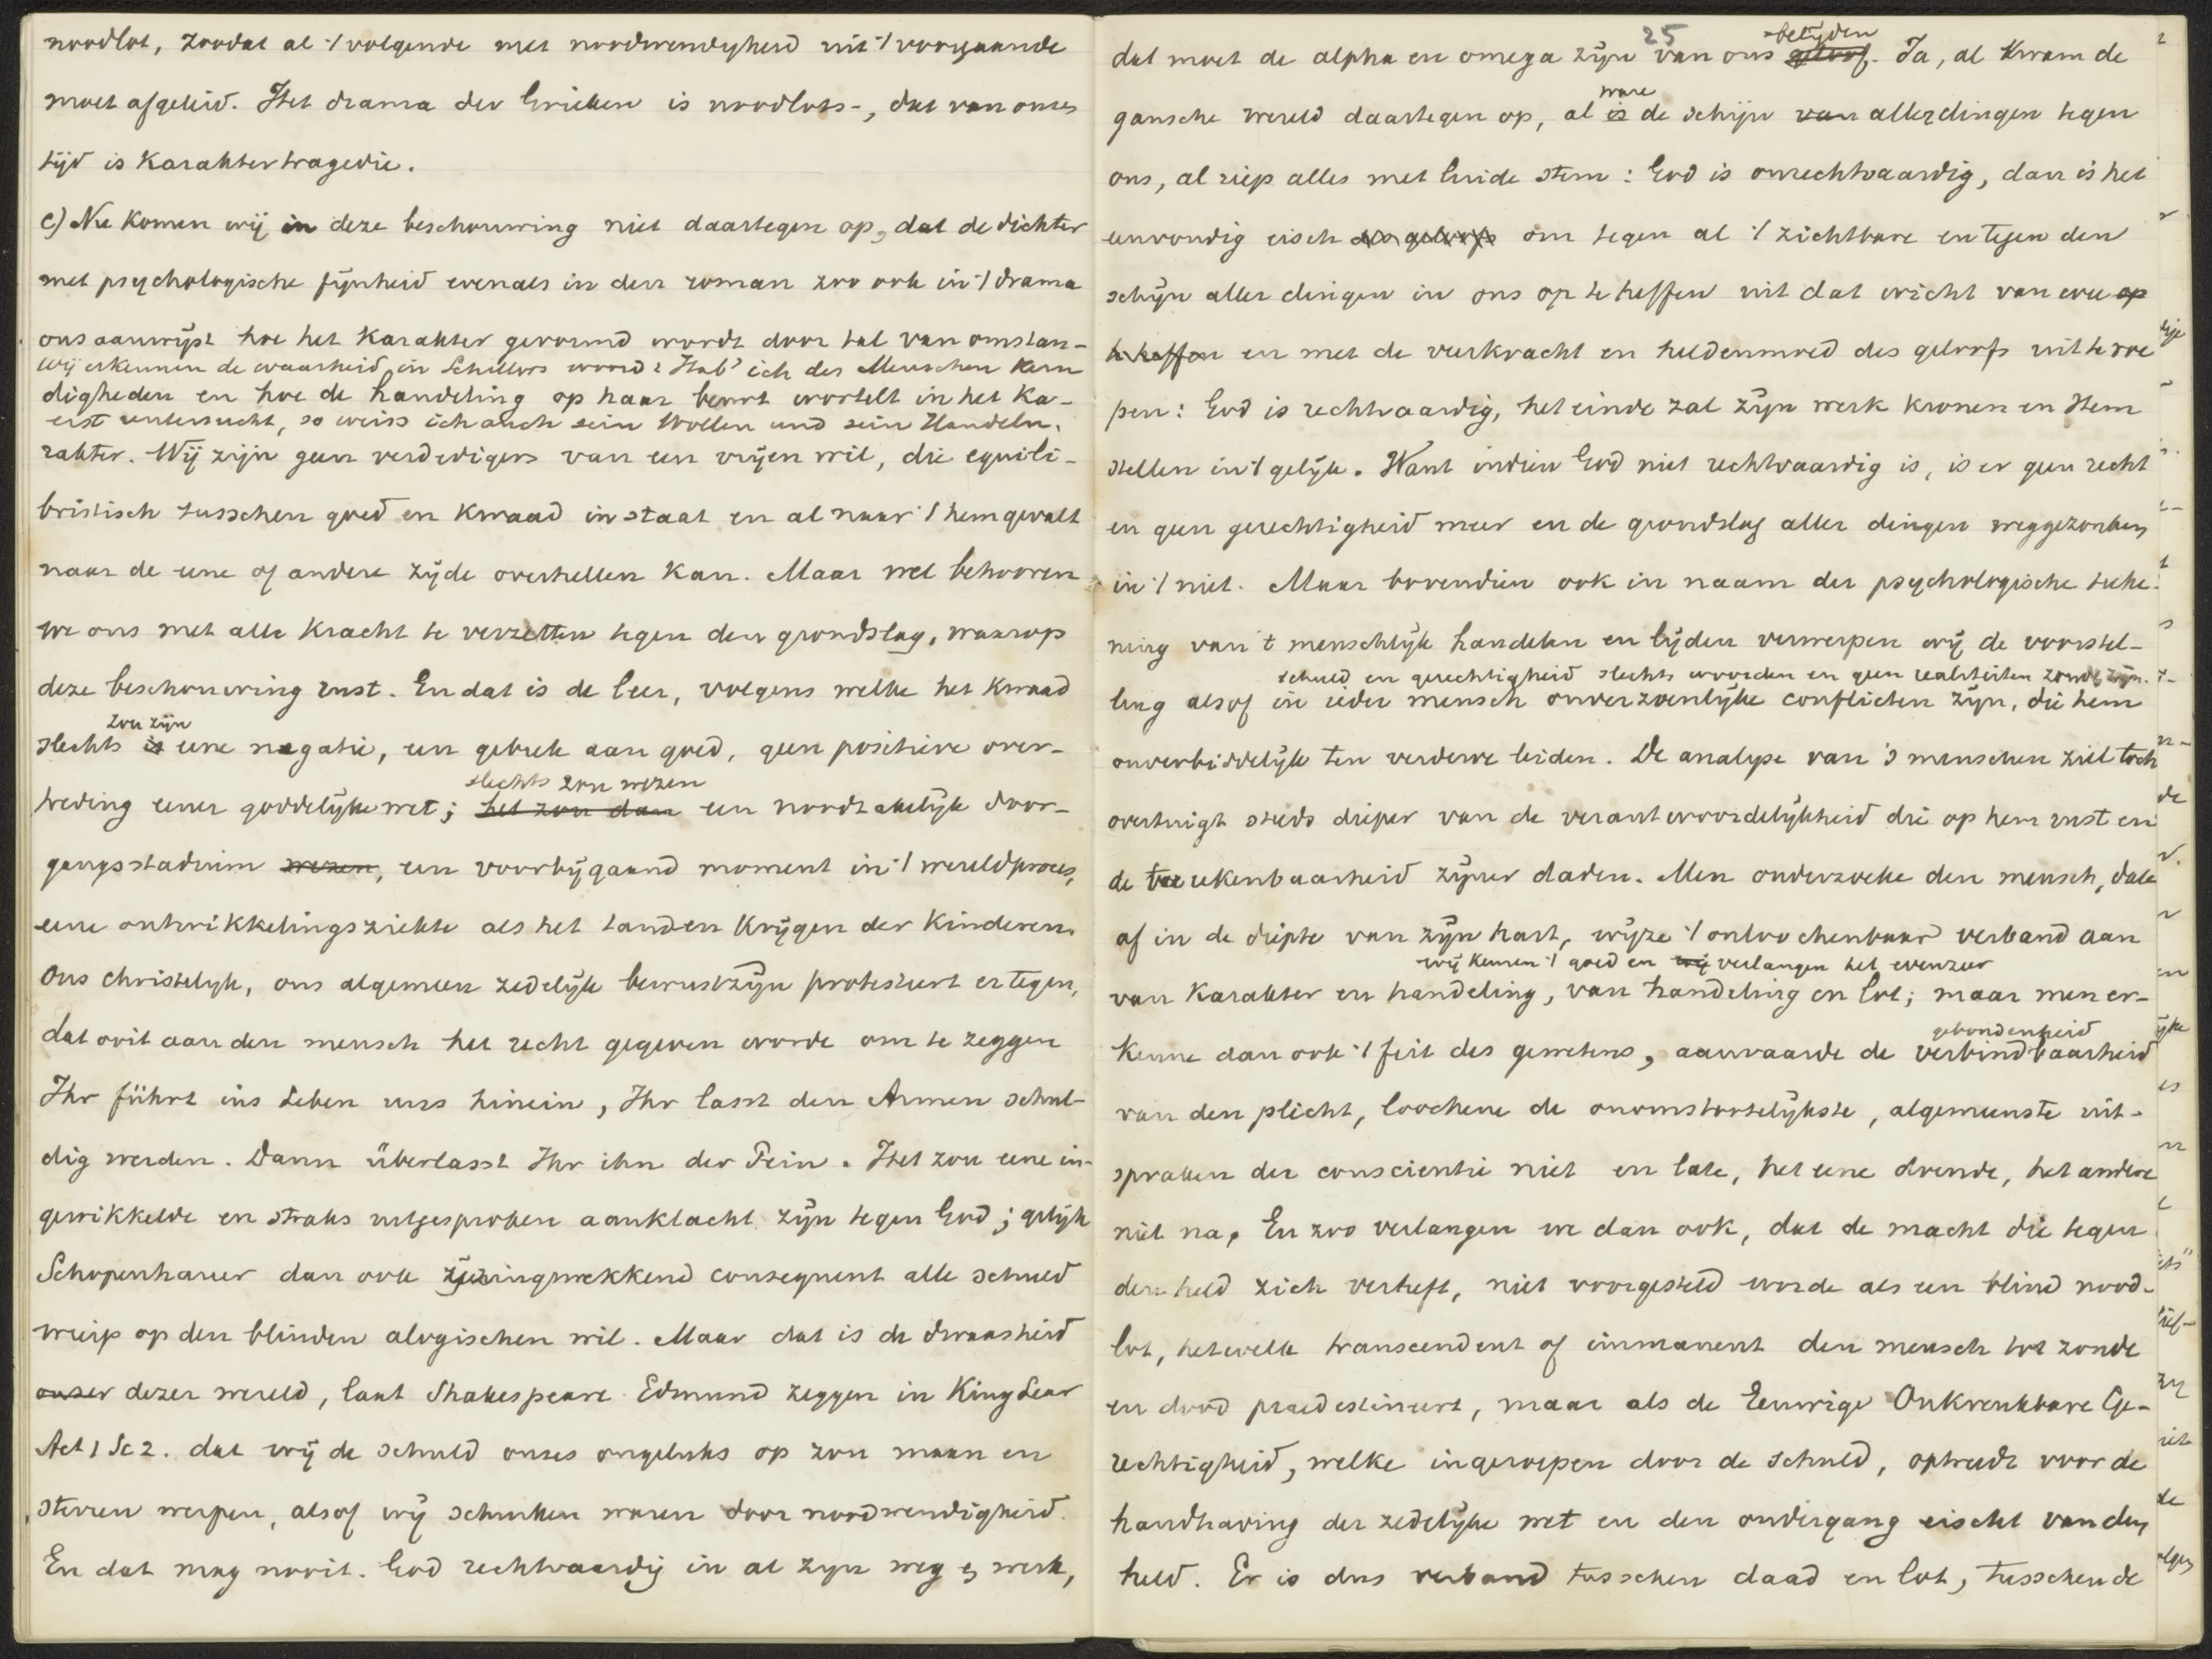 noodlot, zoodat al 't volgende met noodwendigheid uit 't voorgaande
moet afgeleid. Het drama der Grieken is noodlots-, dat van onzen
tijd is Karaktertragedie.
c) Nu komen wij in deze beschouwing niet daartegen op, dat de dichter
met psychologische fijnheid evenals in den roman zoo ook in 't drama
ons aanwijst hoe het Karakter gevormd wordt door tal van omstan-
wij erkennen de waarheid in Schillers woord: Hab' ich des Menschen Kern
digheden en hoe de handeling op haar beurt wortelt in het Ka-
erst untersucht, so weiss ich auch sein Wollen und sein Handeln.
rakter. Wij zijn geen verdedigers van een vrijen wil, die equili-
bristisch tusschen goed en Kwaad in staat en al naar 't hem gevalt
naar de eene of andere zijde overhellen Kan. Maar wel behooren
we ons met alle Kracht te verzetten tegen den grondslag, waarop
deze beschouwing rust. En dat is de leer, volgens welke het Kwaad
zou zijn
slechts is eene negatie, een gebrek aan goed, geen positieve over-
slechts zou wezen
treding eener goddelijke wet; het zou dan een noodzakelijk door-
gangsstadium wezen, een voorbijgaand moment in 't wereldproces,
eene ontwikkelingsziekte als het tanden Krijgen der Kinderen.
Ons christelijk, ons algemeen zedelijk bewustzijn protesteert er tegen,
dat ooit aan den mensch het recht gegeven worde om te zeggen
Ihr führt ins Leben uns hinein, Ihr lasst den Armen schul-
dig werden. Dann überlasst Ihr ihn der Pein. Het zou eene in-
gewikkelde en straks uitgesproken aanklacht zijn tegen God; gelijk
Schopenhauer dan ook ijzingwekkend consequent alle schuld
wierp op den blinden alogischen wil. Maar dat is de dwaasheid
onzer dezer wereld, laat Shakespeare Edmund zeggen in King Lear
Act 1 Sc 2. dat wij de schuld onzes ongeluks op zon maan en
sterren werpen, alsof wij schurken waren door noodwendigheid.
En dat mag nooit. God rechtvaardig in al zijn weg en werk,
25
belijden
dat moet de alpha en omega zijn van ons geloof. Ja, al Kwam de
ware
gansche wereld daartegen op, al is de schijn van aller dingen tegen
ons, al riep alles met luide stem: God is onrechtvaardig, dan is het
eenvoudig eisch des geloofs om tegen al 't zichtbare en tegen den
schijn aller dingen in ons op te heffen uit dat wicht van wee op
te heffen en met de veerkracht en heldenmoed des geloofs uit te roe
pen: God is rechtvaardig, het einde zal zijn werk kronen en Hem
stellen in 't gelijk. Want indien God niet rechtvaardig is, is er geen recht
en geen gerechtigheid meer en de grondslag aller dingen weggezonken
in 't niet. Maar bovendien ook in naam der psychologische teeke-
ning van 't menschlijk handelen en lijden verwerpen wij de voorstel-
schuld en gerechtigheid slechts woorden en geen realiteiten zouden zijn.
ling alsof in ieder mensch onverzoenlijke conflicten zijn, die hem
onverbiddelijk ten verderve leiden. De analyse van 's menschen ziel toch
overtuigt steeds dieper van de verantwoordelijkheid die op hem rust en
de toerekenbaarheid zijner daden. Men onderzoeke den mensch, dale
af in de diepte van zijn hart, wijze 't onloochenbaar verband aan
wij Kennen 't goed en wij verlangen het evenzeer
van Karakter en handeling, van handeling en lot; maar men er-
gebondenheid
Kenne dan ook 't feit des gewetens, aanvaarde de verbindbaarheid
van den plicht, loochene de onomstootelijkste, algemeenste uit-
spraken der conscientie niet en late, het eene doende, het andere
niet na. En zoo verlangen we dan ook, dat de macht die tegen
den held zich verheft, niet voorgesteld worde als een blind nood-
lot, hetwelk transcendent of immanent den mensch tot zonde
en dood praedestineert, maar als de Eeuwige Onkreukbare Ge-
rechtigheid, welke ingeroepen door de schuld, optreedt voor de
handhaving der zedelijke wet en den ondergang eischt van den
held. Er is dus verband tusschen daad en lot, tusschen de